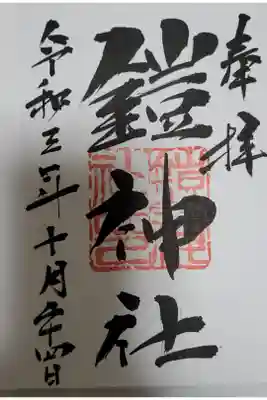 奉拝
鎧神社
令和三年十月二十四日